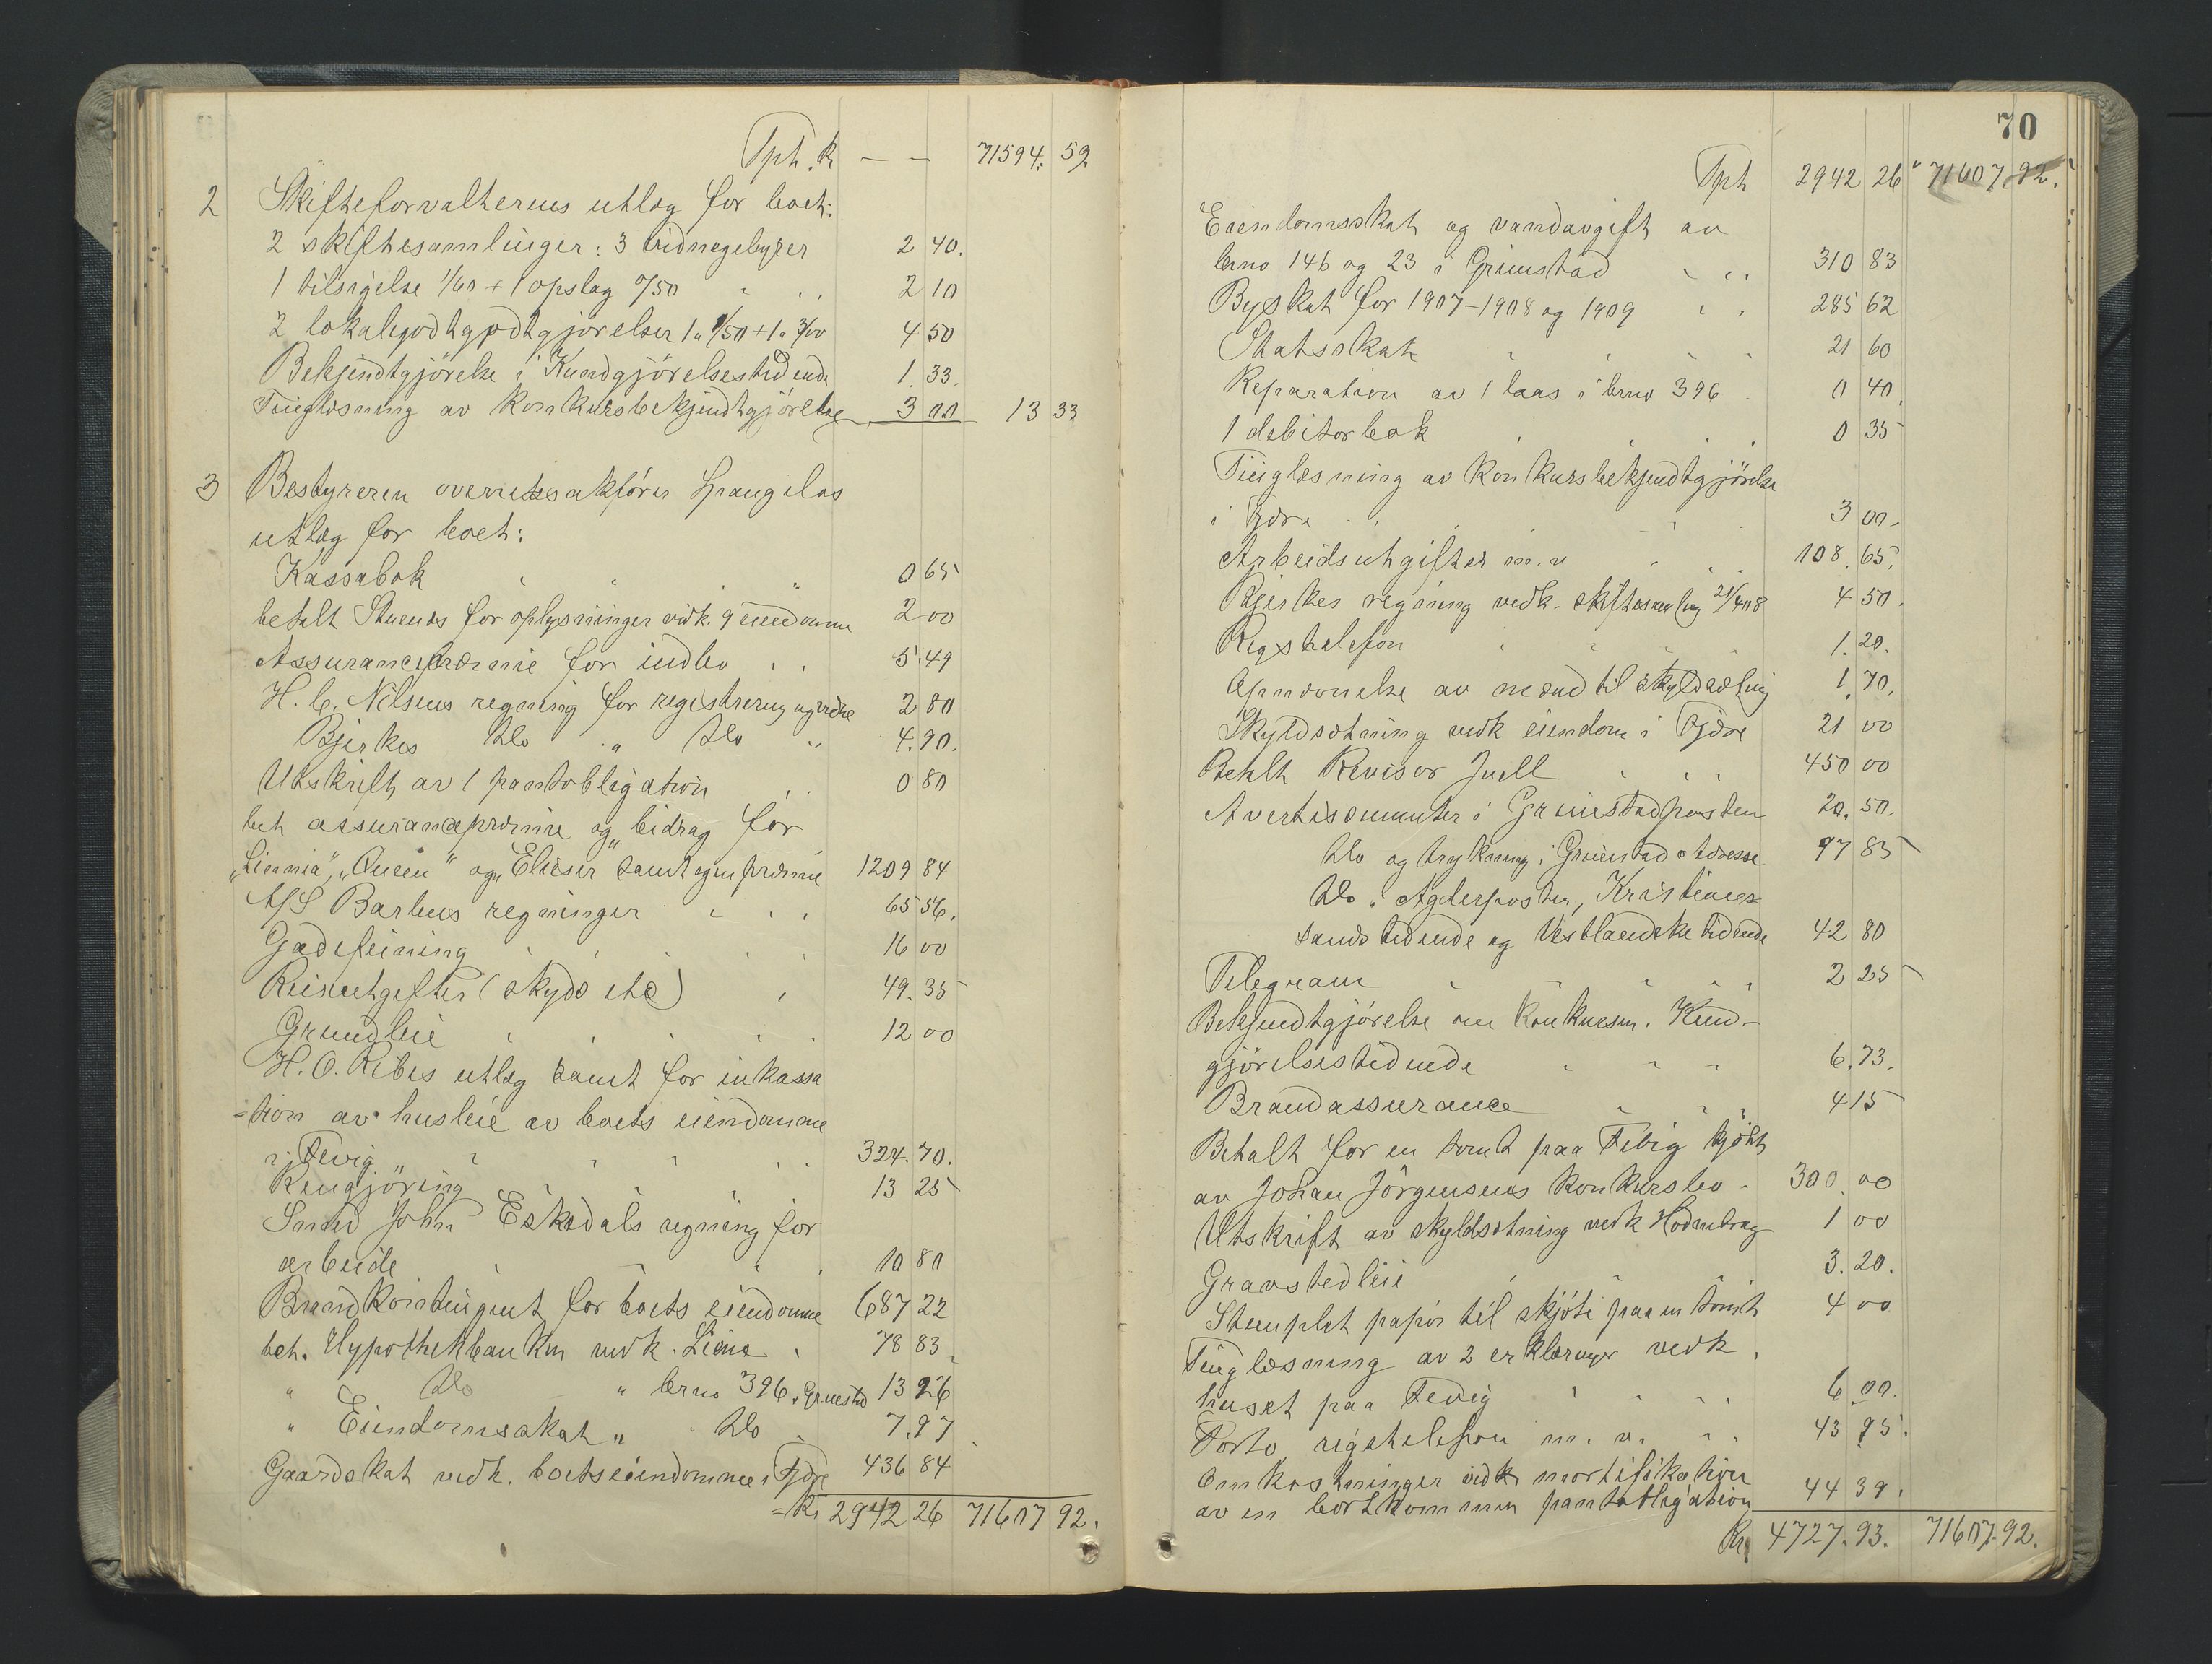 Tph. K — — 71594. 59
2 Skifteforvalterens utlæg for boet:
2 skiftesamlinger: 3 vidnegebyrer 2 40.
1 tilsigelse 1/60 + 1 opslag 0/50 2 10
2 lokalegodtgjørelser 1 a 1/50 + 1 a 3/00 4 50
Bekjendtgjörelse i Kundgjörelsestidende 1. 33.
Tinglæsning av konkursbekjendtgjörelse 3 00 13 33
3 Bestyreren overretssakförer Spangelos
utlæg for boet:
Kassabok 0 65
betalt Stuends for oplysninger vedk. 9 eiendomme 2 00
Assurancepræmie for indbo 5.49
H. C. Nilsens regning for registrering og vidne 2 80
Bjerkes do " do " 4.90.
Utskrift av 1 pantobligation 0 80
bet assurancepræmie og bidrag for
"Linnia", "Queen" og "Elieser samt egen præmie 1209 84
A/S Barbus regninger 65 56.
Gadefeining 16 00
Reiseutgifter (skyds etc) 49. 35
Grundleie 12 00
H. O. Ribes utlæg samt for inkassa
-tion av husleie av boets eiendomme
i Fevig 324. 70.
Rengjöring 13 25
Smed John Eskedals regning for
arbeide 10 80
Brandkontingent for boets eiendomme 687 22
bet. Hypothekbanken vedk. Liene 78 83
" do " brno 396 i Grimstad 13 26
" Eiendomsskat " do 7.97
Gaardskat vedk. boets eiendomme i Fjære 436 84
Kr 2942 26 71607 92.
70
Tph 2942 26 71607.92.
Eiendomsskat og vandavgift av
brno 146 og 23 i Grimstad 310 83
Byskat for 1907-1908 og 1909 285 62
Statsskat 21 60
Reparation av 1 laas i brno 396 0 40
1 debitorbok 0 35
Tinglæsning av konkursbekjendtgjörelse
i Fjære 3 00.
Arbeidsutgifter m. v 108. 65.
Bjerkes regning vedk. skiftesamling 21/4 08 4 50.
Rigstelefon 1. 20.
Opnævnelse av mænd til skyldsætning 1. 70.
Skyldsætning vedk eiendom i Fjære 21 00
Betalt Revisor Juell 450 00
Avertissementer i Grimstadposten 20. 50.
do og trykning i Grimstad Adresse 97 85
do i Agderposten, Kristians-
sands tidende og Vestlandske tidende 42 80
Telegram 2 25
Bekjendtgjörelse om konkursen i Kund-
gjörelsestidende 6. 73.
Brandassurance 4 15
Betalt for en tomt paa Fevig kjöpt
av Johan Jörgensens konkursbo 300. 00
Utskrift av skyldsætning vedk 1 00
Gravstedleie 3. 20.
Stemplet papir til skjöte paa en tomt 4 00
Tinglæsning av 2 erklæringer vedk.
huset paa Fevig 6. 00.
Porto rigstelefon m. v. 43 95.
Omkostninger vedk mortifikation
av en bortkommen pantobligation 44 39.
Kr 4727. 93. 71607.92.